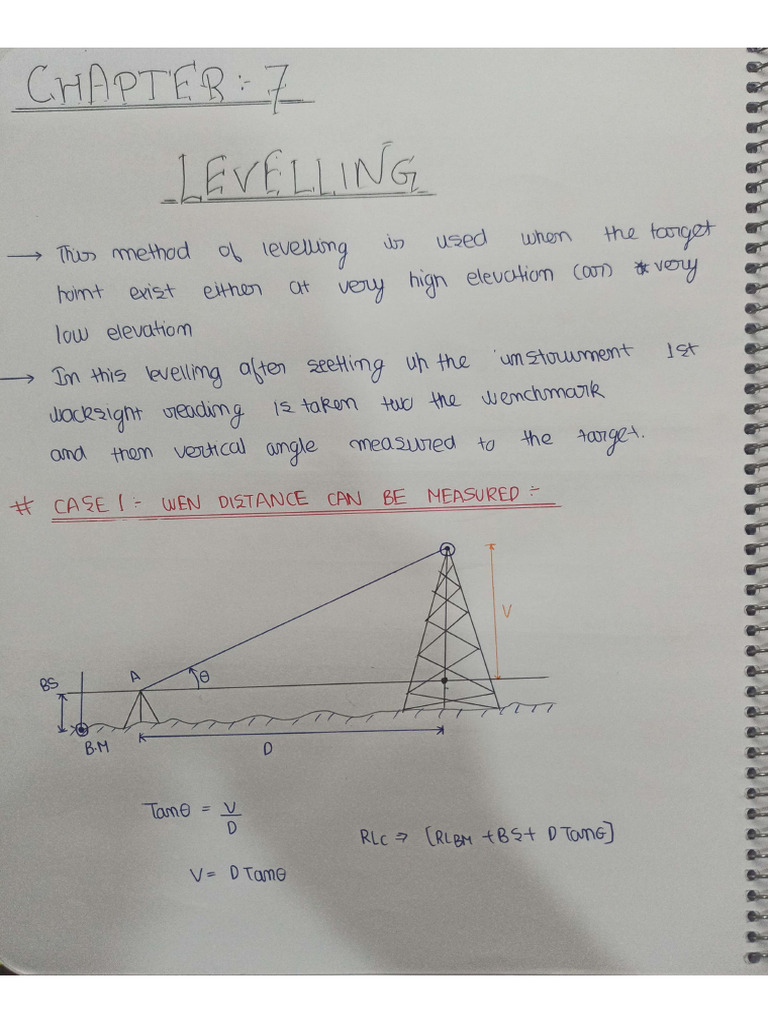 CHAPTER:- 7
LEVELLING
→ This method of levelling is used when the target
point exist either at very high elevation (or) very
low elevation
→ In this levelling after seetting up the instrument 1st
backsight reading is taken two the benchmark
and then vertical angle measured to the target.
# CASE 1:- WEN DISTANCE CAN BE MEASURED:-
V
A
θ
BS
B.M
D
Tanθ = V/D
RLC ⇒ [RLBM + BS + D Tanθ]
V = D Tanθ